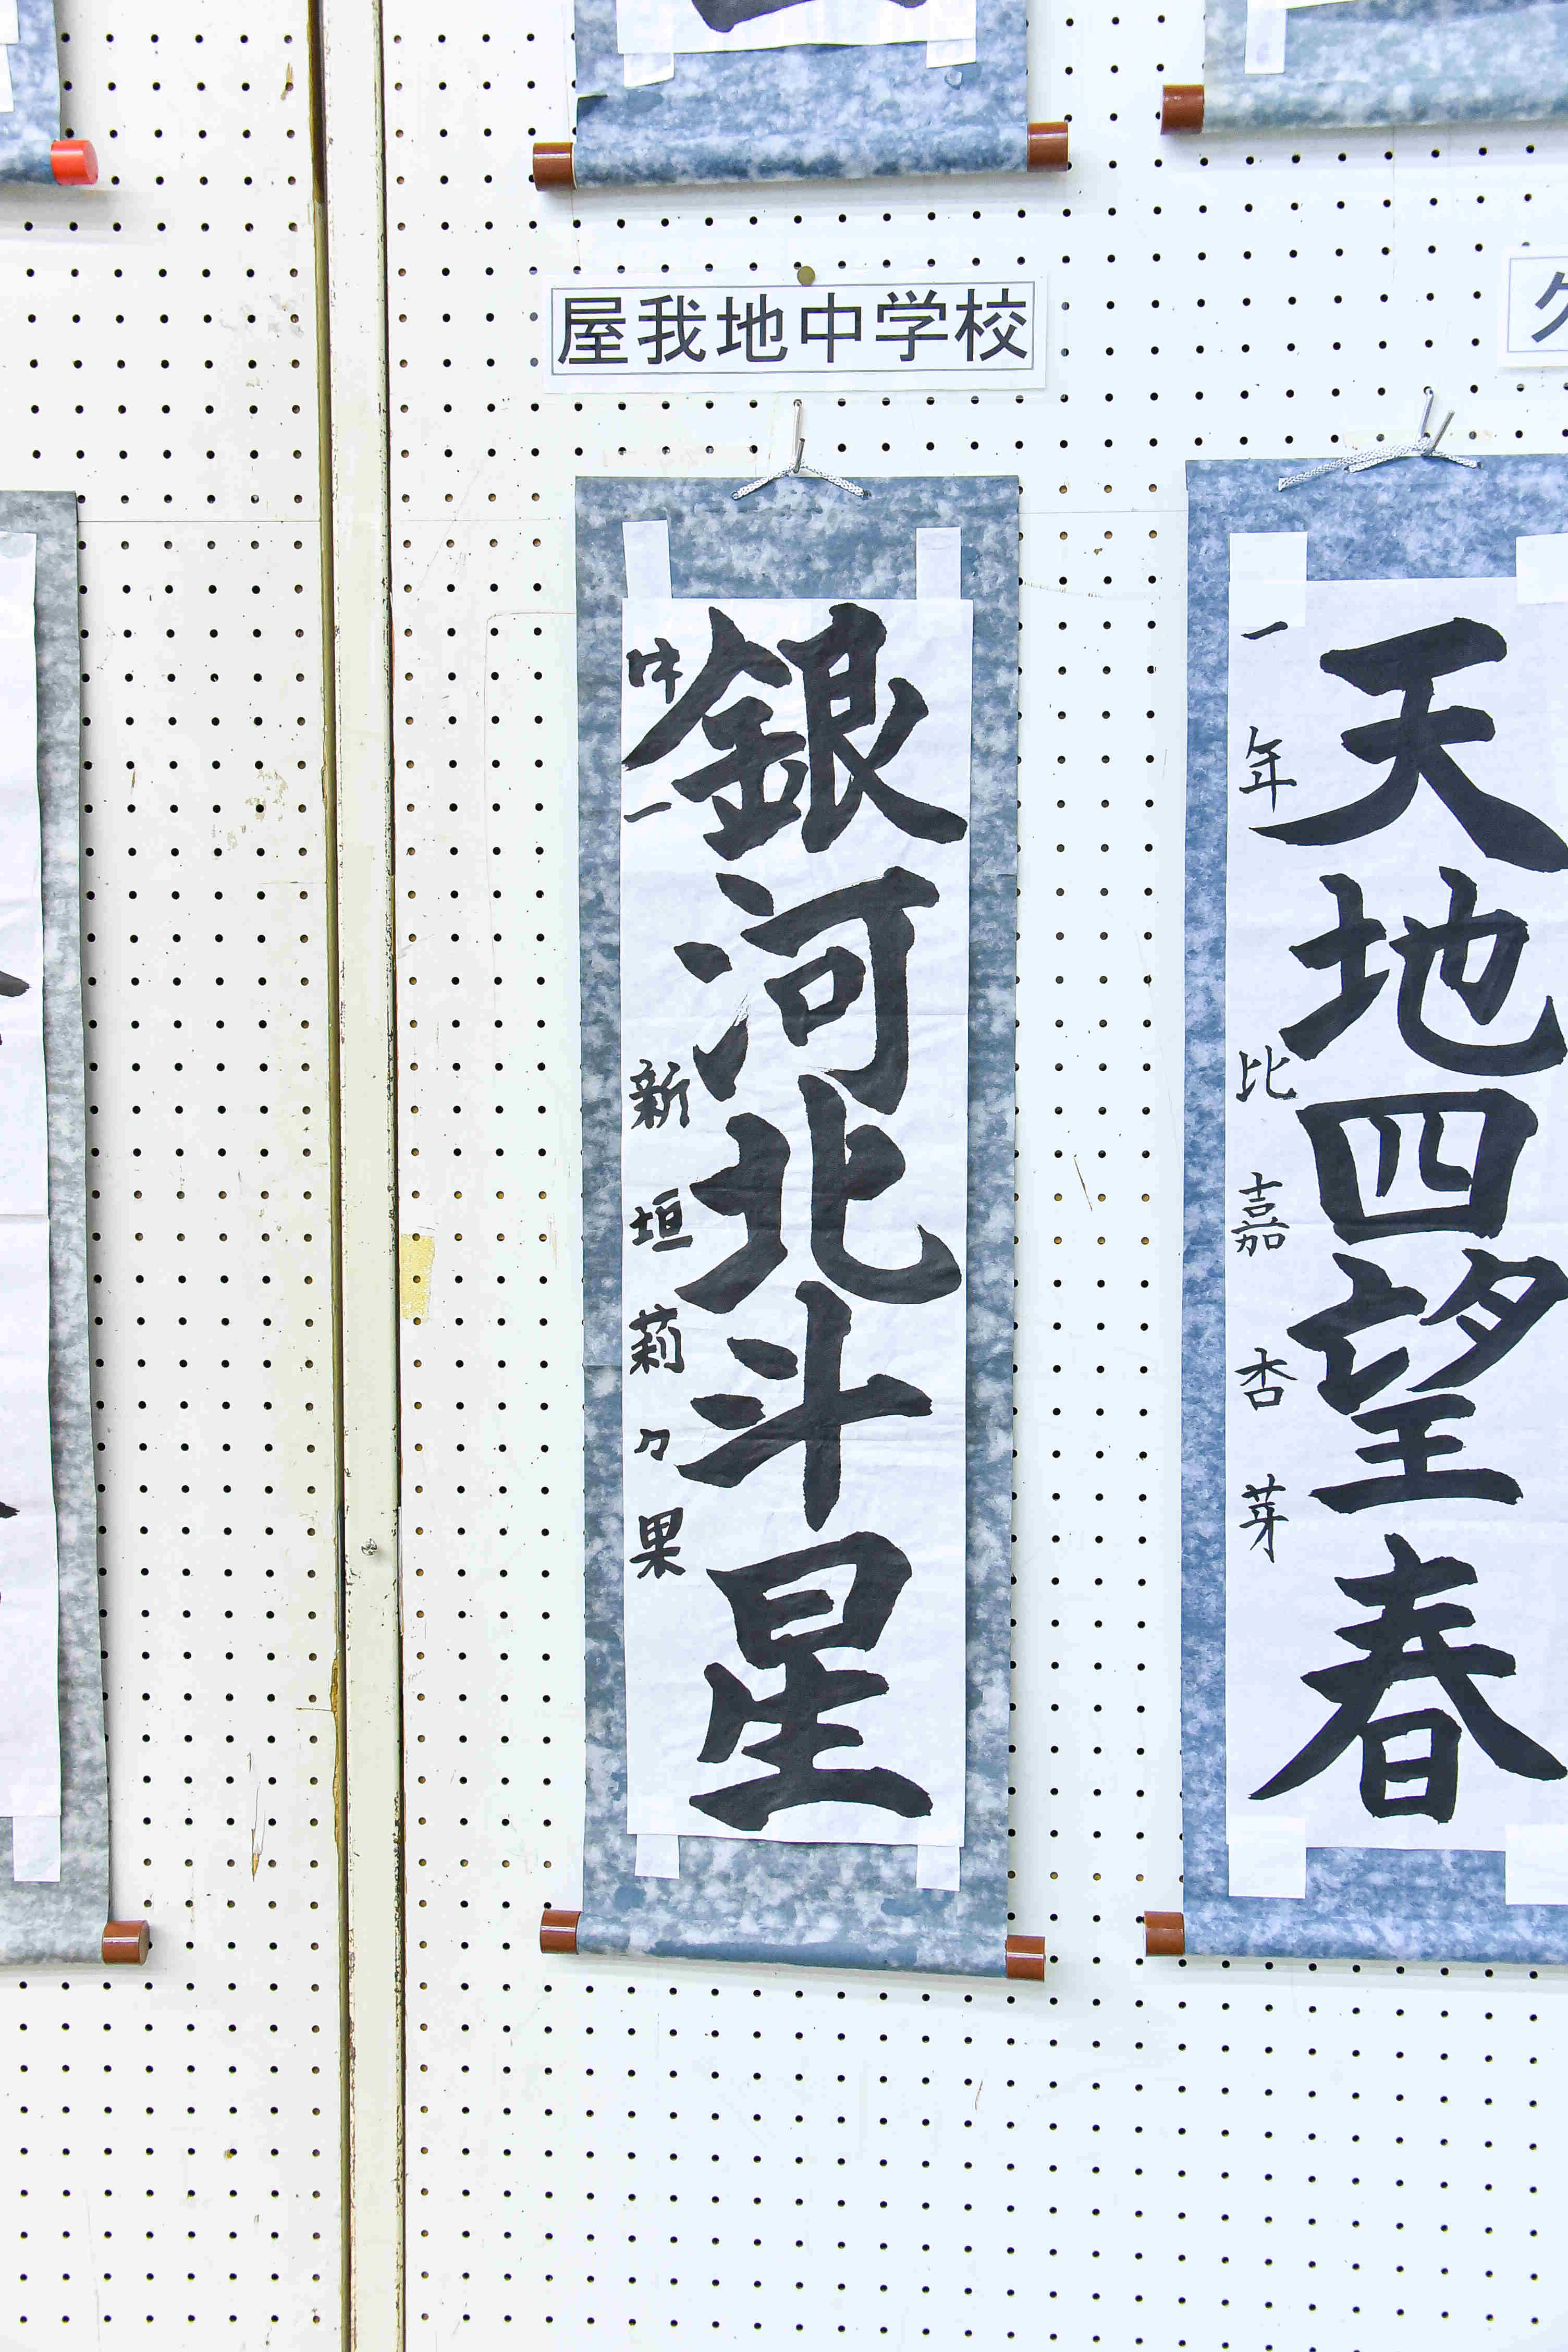 屋我地中学校
銀河北斗星
中一 新垣莉々果
天地四望春
一年 比嘉杏芽